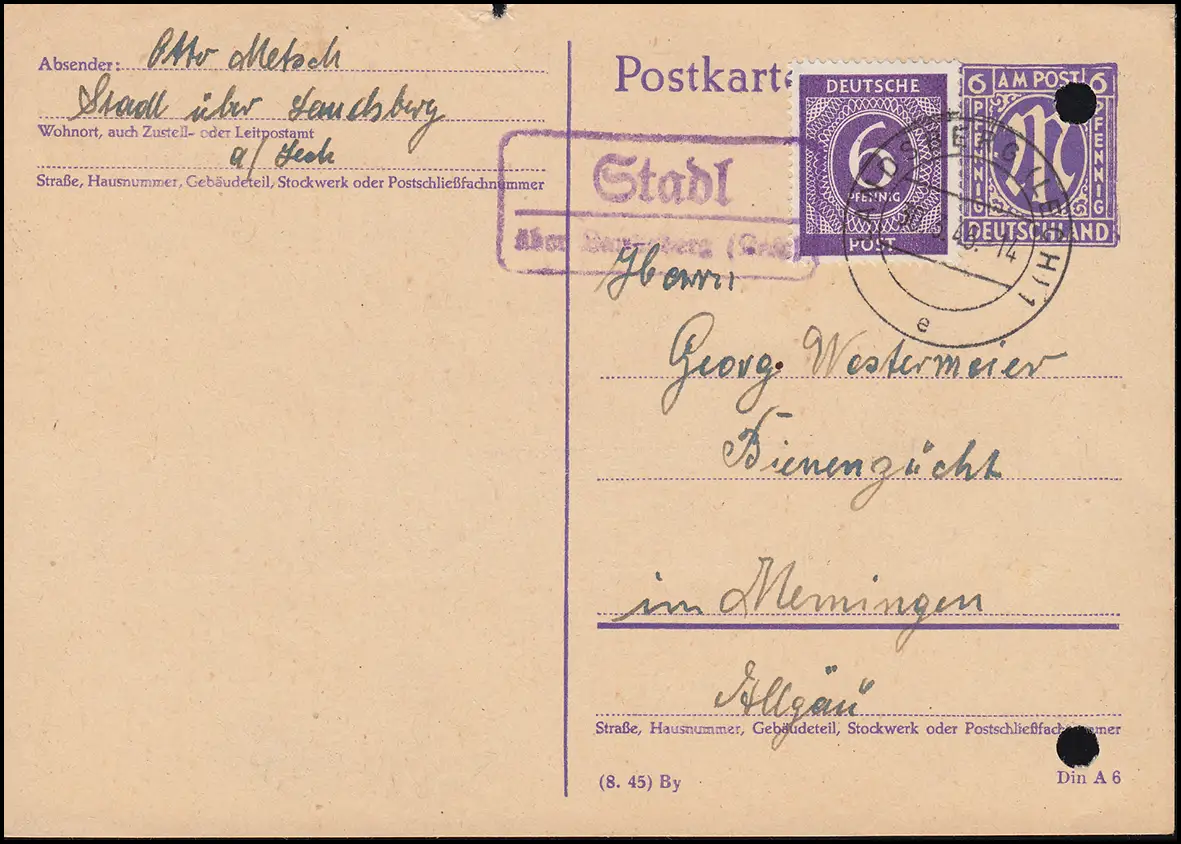 Absender: Otto Metsch
Stadl über Landsberg
Wohnort, auch Zustell- oder Leitpostamt
a/ Lech
Straße, Hausnummer, Gebäudeteil, Stockwerk oder Postschließfachnummer
Postkarte
DEUTSCHE
6
PFENNIG
POST
6 AM POST 6
PFENNIG
M
PFENNIG
DEUTSCHLAND
Stadl
über Landsberg (Lech)
LANDSBERG (LECH) 1
46. 14
e
Herrn
Georg Westermeier
Bienenzücht
im Memingen
Allgäu
Straße, Hausnummer, Gebäudeteil, Stockwerk oder Postschließfachnummer
(8. 45) By
Din A 6